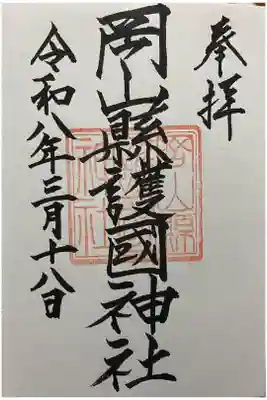 奉拝
岡山縣護國神社
令和八年三月十八日